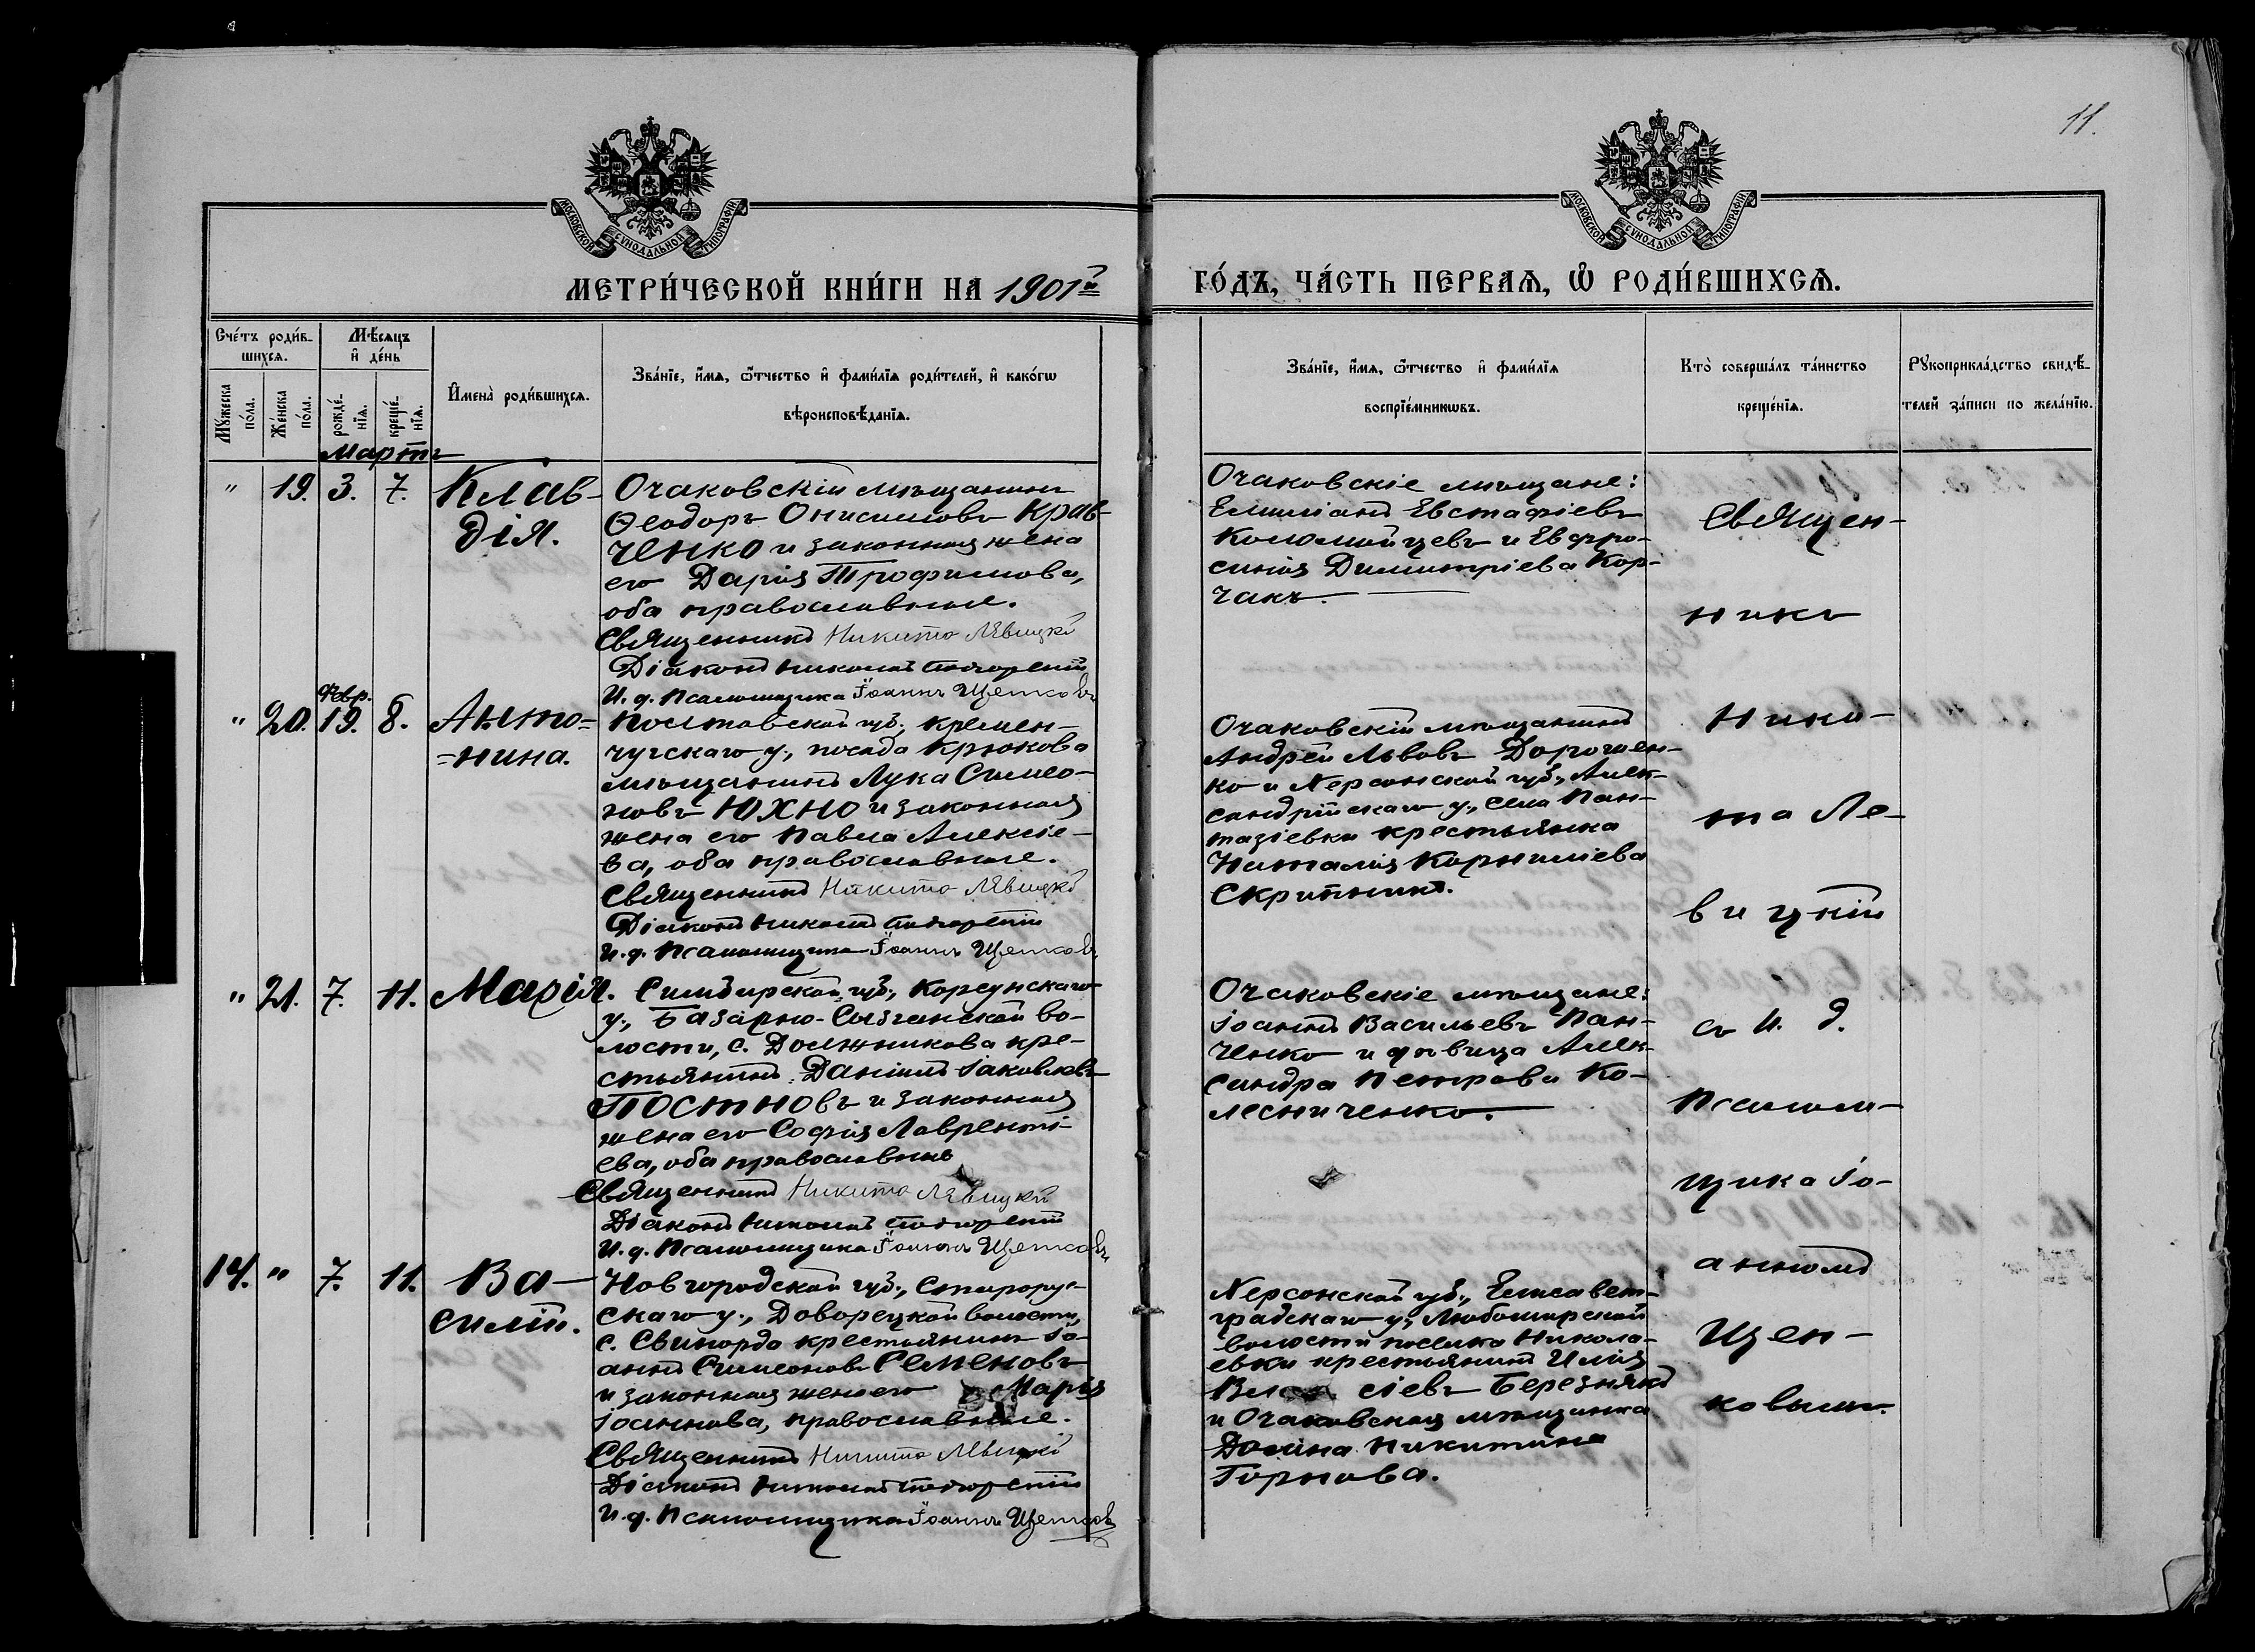 11.
МОСКОВСКОЙ СѴНОДАЛЬНОЙ ТИПОГРАФІИ
МОСКОВСКОЙ СѴНОДАЛЬНОЙ ТИПОГРАФІИ
МЕТРИ́ЧЕСКОЙ КНИ́ГИ НА 1901й
ГО́ДЪ, ЧА́СТЬ ПЕРВАѦ, Ѡ҆ РОДИ́ВШИХСѦ.
Сче́тъ роди́в-
шихсѧ.
Мꙋжеска
по́ла.
Же́нска
по́ла.
Мѣ́сѧцъ
и҆ де́нь
рожде́-
нїѧ.
креще́-
нїѧ.
И҆мена̀ роди́вшихсѧ.
Зва́нїе, и҆́мѧ, ѻ҆́тчество и҆ фами́лїѧ роди́телей, и҆ како́гѡ
вѣроисповѣ́данїѧ.
Зва́нїе, и҆́мѧ, ѻ҆́тчество и҆ фами́лїѧ
воспрїе́мникѡвъ.
Кто̀ соверша́лъ та́инство
креще́нїѧ.
Рꙋкоприкла́дство свидѣ́-
телей за́писи по жела́нїю.
Мартъ
" 19. 3. 7. Клав-
дія.
Очаковскій мѣщанинъ
Ѳеодоръ Онисимовъ Крав-
ченко и законная жена
его Дарія Трофимова,
оба православные.
Священникъ Никита Лѣвицкій
Діаконъ Николай
И. д. Псаломщика Іоаннъ Щетковъ
Очаковскіе мѣщане:
Емиліанъ Евстафіевъ
Коломойцевъ и Евфро-
синія Димитріева Кор-
чакъ.
" 20. Февр. 19. 8. Анто-
нина.
Полтавской губ., Кремен-
чугскаго у., посада Крюкова
мѣщанинъ Лука Симео-
новъ Юхно и законная
жена его Павла Алексіе-
ва, оба православные.
Священникъ Никита Лѣвицкій
Діаконъ Николай
И. д. Псаломщика Іоаннъ Щетковъ
Очаковскій мѣщанинъ
Андрей Львовъ Дорошен-
ко и Херсонской губ., Алек-
сандрійскаго у., села Пан-
тазіевки крестьянка
Наталія Корниліева
Скрипникъ.
" 21. 7. 11. Марія.
Симбирской губ., Корсунскаго
у., Базарно-Сызганской во-
лости, с. Должникова кре-
стьянинъ Даніилъ Іаковлевъ
Постновъ и законная
жена его Софія Лавренті-
ева, оба православные
Священникъ Никита Лѣвицкій
Діаконъ Николай
И. д. Псаломщика Іоаннъ Щетковъ
Очаковскіе мѣщане:
Іоаннъ Васильевъ Пан-
ченко и дѣвица Алек-
сандра Петрова Ко-
лесниченко.
14. " 7. 11. Ва-
силій.
Новгородской губ., Старорус-
скаго у., Доворецкой волости,
с. Свинорда крестьянинъ Іо-
аннъ Симеоновъ Семеновъ
и законная жена его Марія
Іоаннова, православные.
Священникъ Никита Лѣвицкій
Діаконъ Николай
И. д. Псаломщика Іоаннъ Щетковъ
Херсонской губ., Елисавет-
градскаго у., Любомирской
волости поселка Никола-
евки крестьянинъ Илія
сіевъ Березнякъ
и Очаковская мѣщанка
Домна Никитина
Горнова.
Священ-
никъ
Ники-
та Ле-
вицкій
съ И. д.
Псалом-
щика Іо-
анномъ
Щет-
ковымъ.